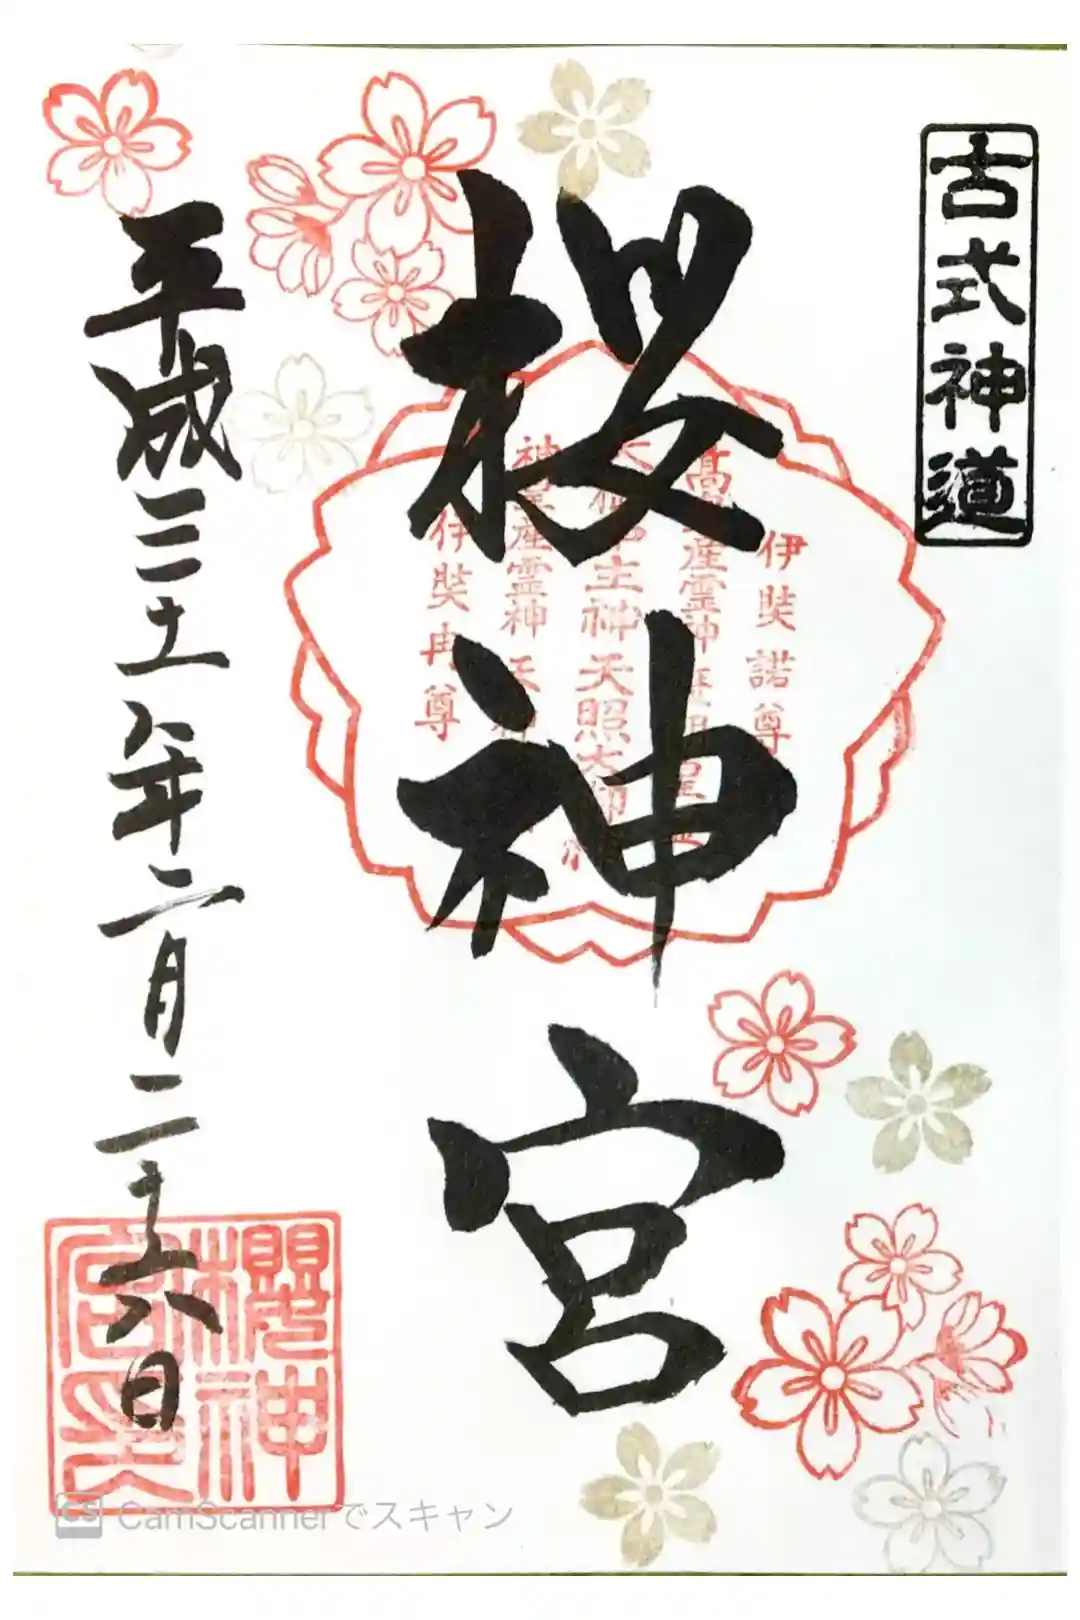 古式神道
桜神宮
伊奘諾尊
高皇産霊神
天御中主神 天照大御神
神皇産霊神
伊奘冉尊
平成三十一年二月二十六日
櫻神宮印
CamScannerでスキャン